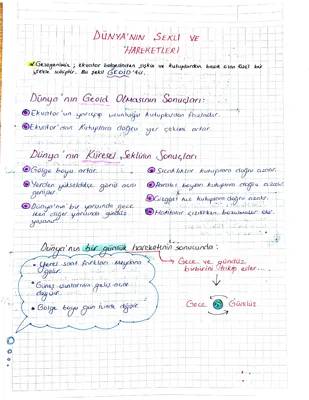 DÜNYA'NIN ŞEKLİ VE
HAREKETLERİ
Gezegenimiz; ekvator bölgesinden şişkin ve kutuplardan basık olan özel bir
şekle sahiptir. Bu şekil GEOİD'tir.
Dünya'nın Geoid Olmasının Sonuçları:
Ekvator'un yarıçap uzunluğu kutuplardan fazladır.
Ekvator'dan Kutuplara doğru yer çekimi artar.
Dünya'nın Küresel Şeklinin Sonuçları
Gölge boyu artar.
Yerden yükseldikçe görüş açısı
genişler.
Dünya'nın bir yarısında gece
iken diğer yarısında gündüz
yaşanır.
Sıcaklıklar kutuplara doğru azalır.
Paralel boyları kutuplara doğru azalır.
Çizgisel hız kutuplara doğru azalır.
Haritalar çizilirken bozulmalar olur.
Dünya'nın bir günlük hareketinin sonucunda:
Yerel saat farkları meydana
gelir.
Güneş ışınlarının geliş açısı
değişir.
Gölge boyu gün içinde değişir.
Gece ve gündüz
birbirini takip eder...
Gece
Gündüz